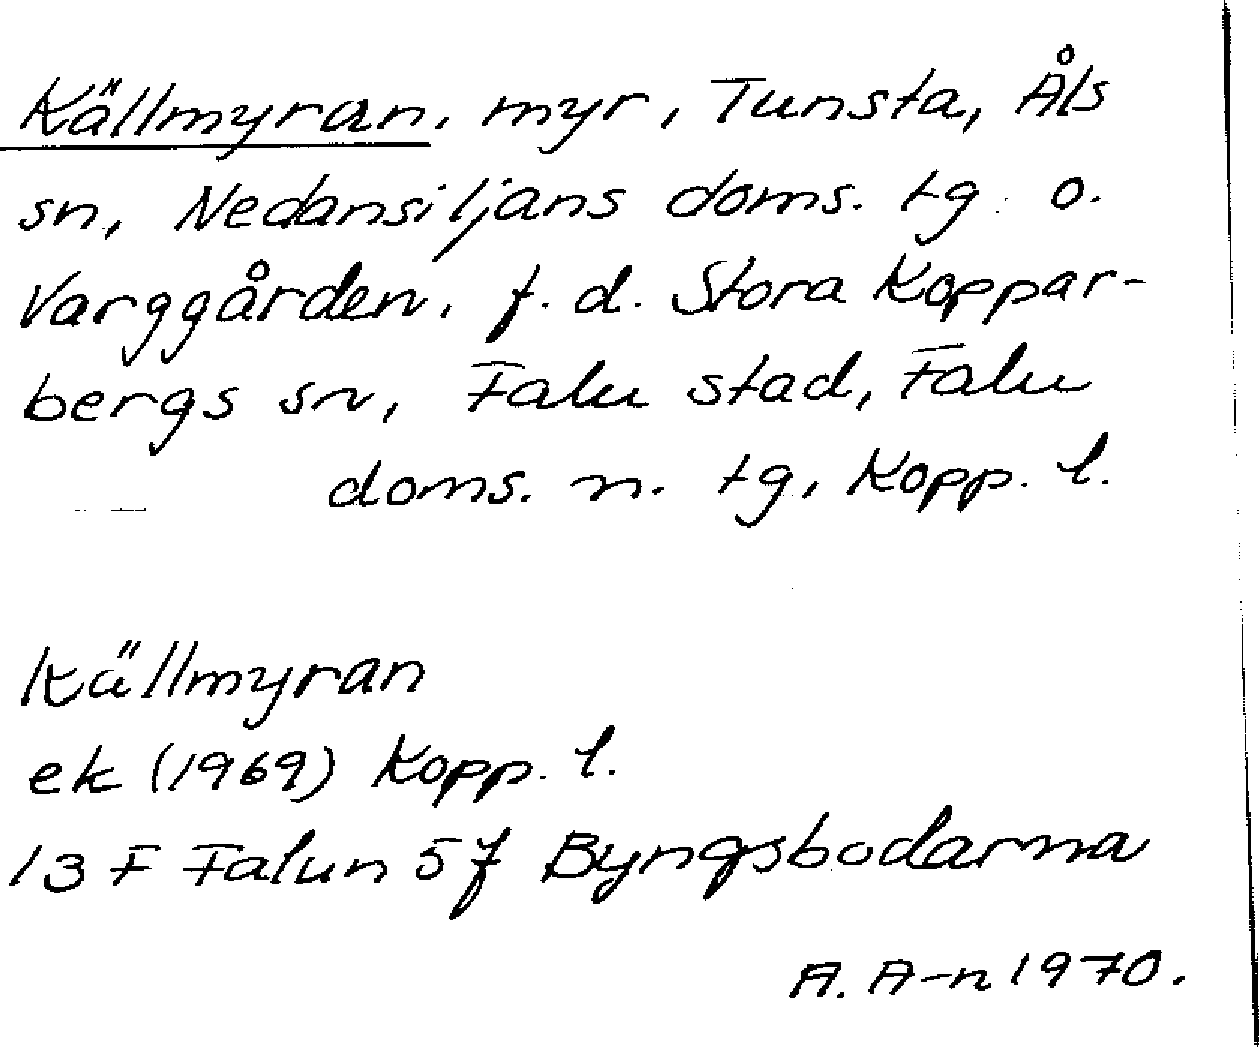 Källmyran, myr, Tunsta, Åls
sn, Nedansiljans doms. tg o.
Varggården, f. d. Stora Koppar-
bergs sn, Falu stad, Falu
doms. n. tg, Kopp. l.
Källmyran
ek (1969) Kopp. l.
13 F Falun 5 f Byngsbodarna
A. A-n 1970.